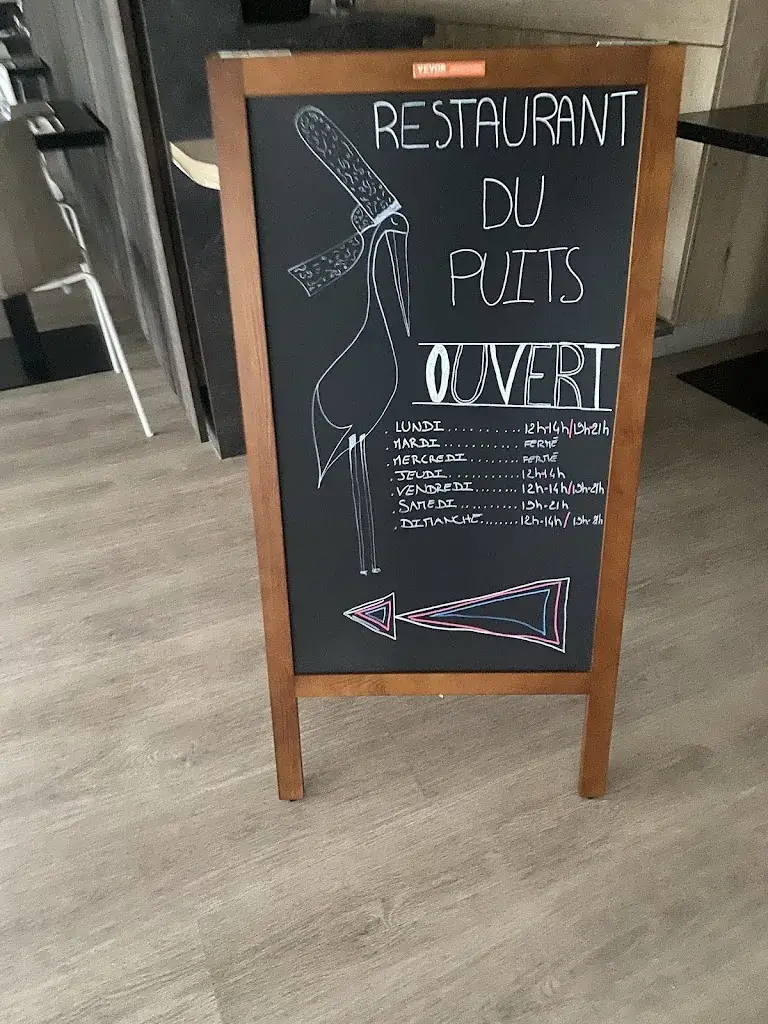 VEVOR
RESTAURANT
DU
PUITS
OUVERT
. LUNDI .......... 12h-14h/19h-21h
. MARDI .......... FERMÉ
. MERCREDI ........ FERMÉ
. JEUDI .......... 12h-14h
. VENDREDI ....... 12h-14h/19h-21h
. SAMEDI .......... 19h-21h
. DIMANCHE ....... 12h-14h/